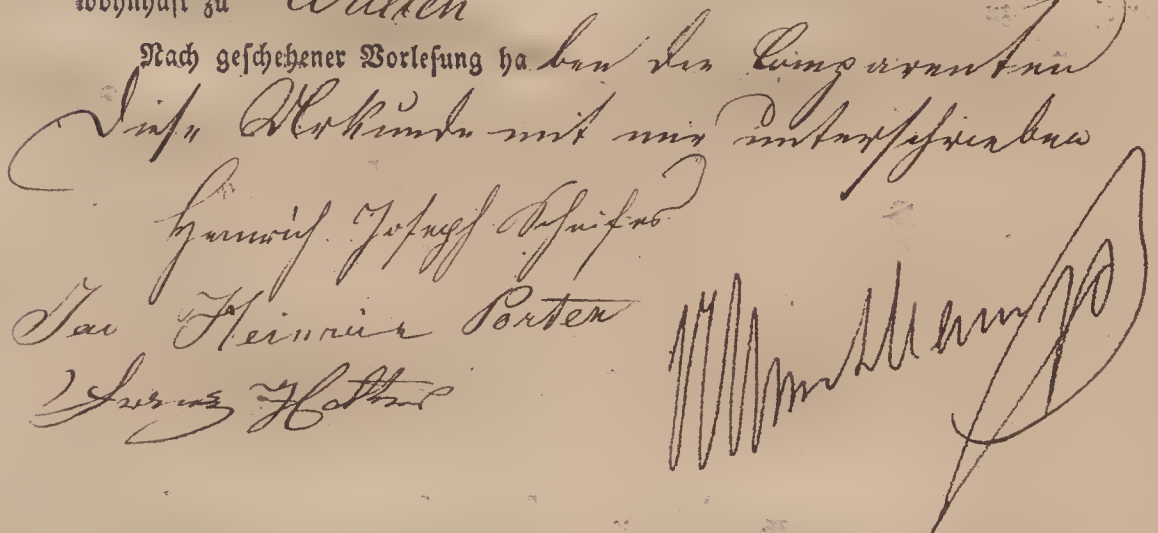 wohnhaft zu
Nach geschehener Vorlesung haben die Comparenten
diese Urkunde mit mir unterschrieben
Heinrich Joseph Scheifes
Jac Heinrich Porten
Franz